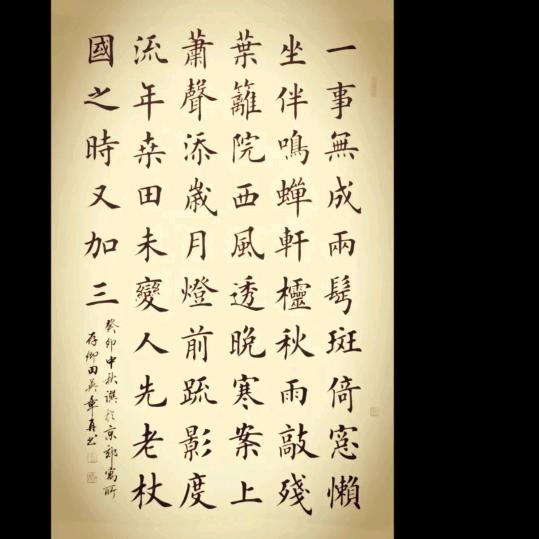 一事無成兩鬢斑倚窓懶
坐伴鳴蟬軒櫺秋雨敲殘
葉籬院西風透晚寒案上
蕭聲添歲月燈前疏影度
流年桑田未變人先老杖
國之時又加三
癸卯中秋譔於京郊寓所
存卿田英章再書